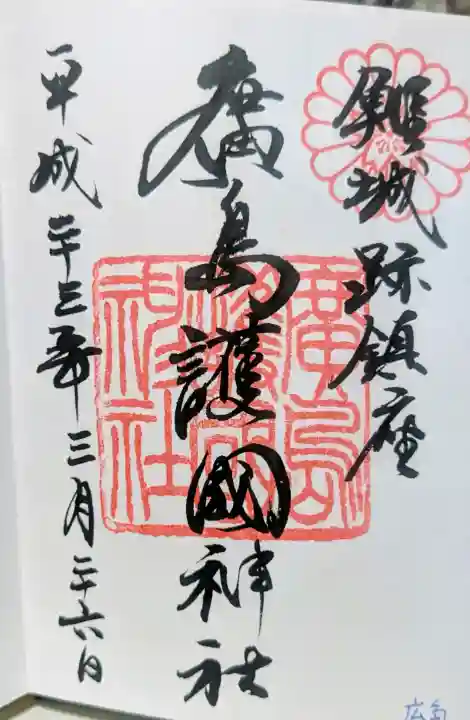 鯉城跡鎮座
廣島護國神社
廣島護國神社
平成二十三年三月二十六日
広島